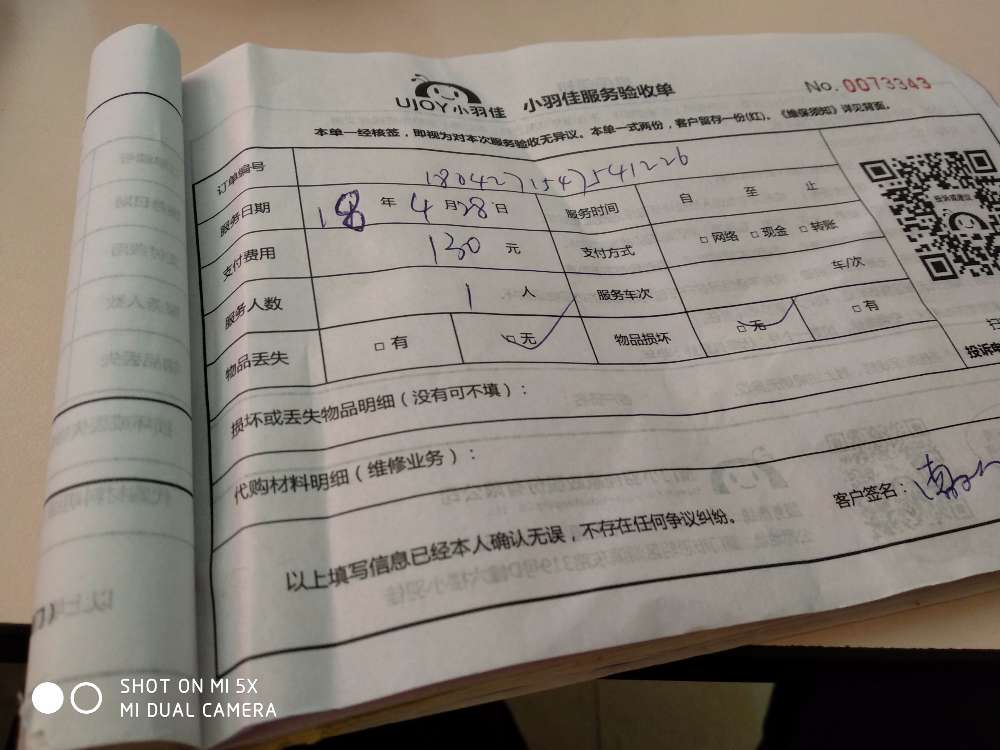 UJOY小羽佳 小羽佳服务验收单 No. 0073343
本单一经核签，即视为对本次服务验收无异议。本单一式两份，客户留存一份(红)。《维保须知》详见背面。
订单编号 18042715475541226
服务日期 18年4月28日 服务时间 自 至 止
支付费用 130元 支付方式 □网络 □现金 □转账
服务人数 1人 服务车次 车/次
物品丢失 □有 □无 物品损坏 □无 □有
投诉电
损坏或丢失物品明细（没有可不填）：
代购材料明细（维修业务）：
客户签名：
以上填写信息已经本人确认无误，不存在任何争议纠纷。
SHOT ON MI 5X
MI DUAL CAMERA